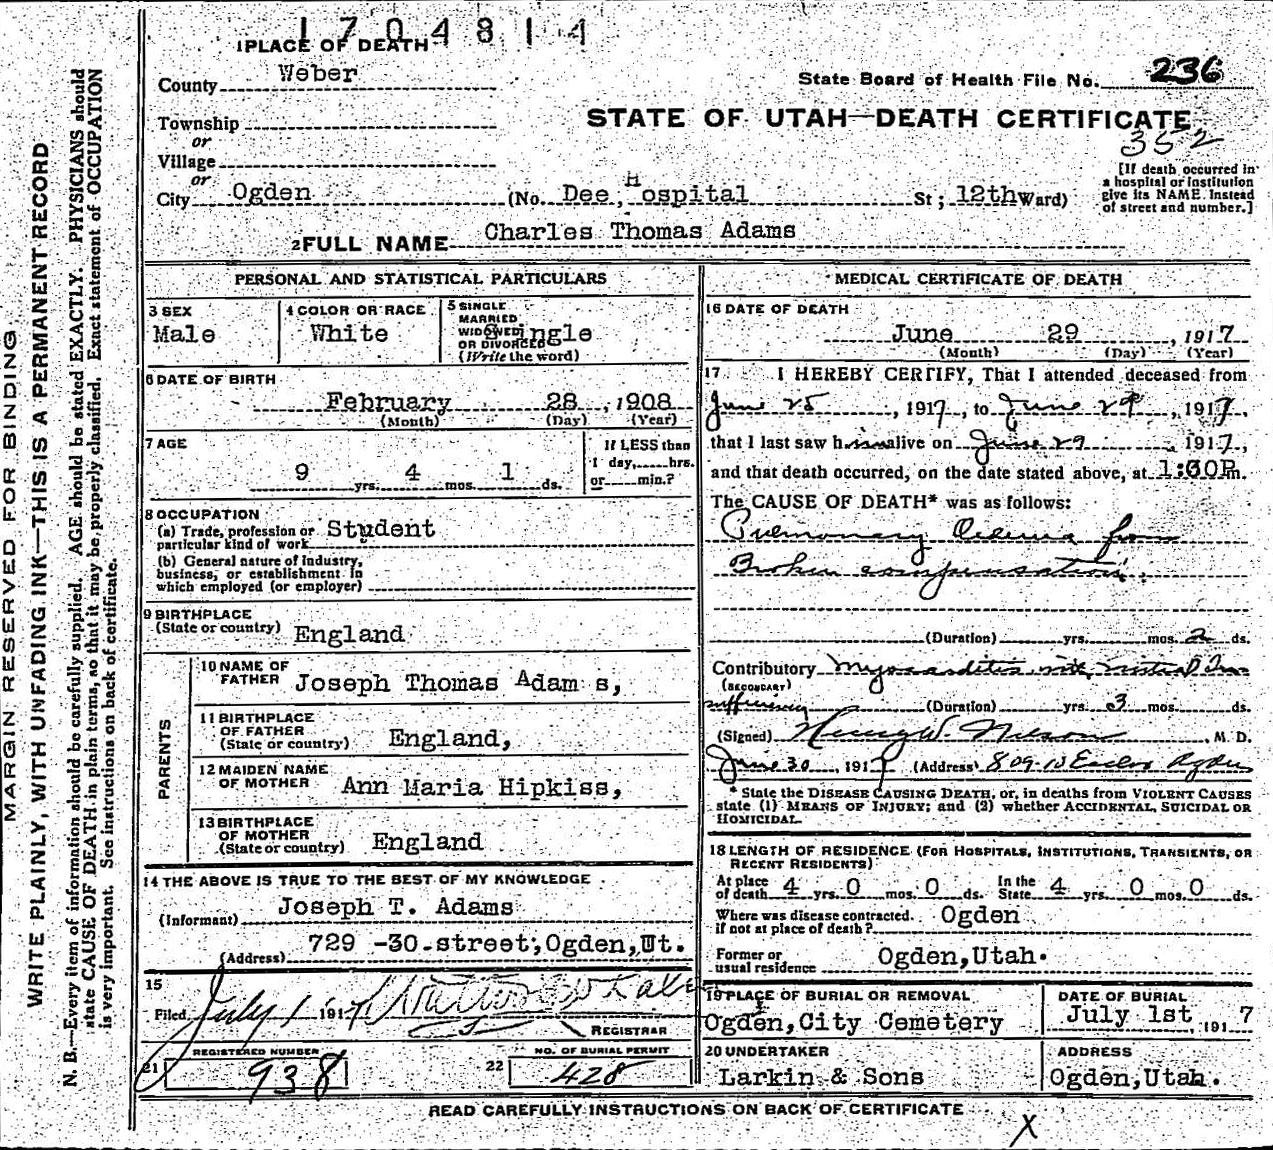 1704814
1 PLACE OF DEATH
County Weber
State Board of Health File No. 236
STATE OF UTAH—DEATH CERTIFICATE
352
Township
or
Village
or
City Ogden (No. Dee, Hospital St; 12th Ward)
[If death occurred in
a hospital or institution
give its NAME instead
of street and number.]
2 FULL NAME Charles Thomas Adams
PERSONAL AND STATISTICAL PARTICULARS
3 SEX
Male
4 COLOR OR RACE
White
5 SINGLE
MARRIED
WIDOWED
OR DIVORCED
(Write the word)
Single
6 DATE OF BIRTH
February 28, 1908
(Month) (Day) (Year)
7 AGE
9 yrs. 4 mos. 1 ds.
If LESS than
1 day, hrs.
or min.?
8 OCCUPATION
(a) Trade, profession or
particular kind of work Student
(b) General nature of industry,
business, or establishment in
which employed (or employer)
9 BIRTHPLACE
(State or country) England
PARENTS
10 NAME OF
FATHER Joseph Thomas Adams,
11 BIRTHPLACE
OF FATHER
(State or country) England,
12 MAIDEN NAME
OF MOTHER Ann Maria Hipkiss,
13 BIRTHPLACE
OF MOTHER
(State or country) England
14 THE ABOVE IS TRUE TO THE BEST OF MY KNOWLEDGE
(Informant) Joseph T. Adams
(Address) 729 -30-street, Ogden, Ut.
15
Filed July 1 1917
REGISTRAR
REGISTERED NUMBER
21 938
NO. OF BURIAL PERMIT
22 428
MEDICAL CERTIFICATE OF DEATH
16 DATE OF DEATH
June 29, 1917
(Month) (Day) (Year)
17 I HEREBY CERTIFY, That I attended deceased from
June 25, 1917, to June 29, 1917,
that I last saw him alive on June 29, 1917,
and that death occurred, on the date stated above, at 1:30P.m.
The CAUSE OF DEATH* was as follows:
Pulmonary Oedema from
Broken compensation
(Duration) yrs. mos. 2 ds.
Contributory Myocarditis with mitral In-
(SECONDARY)
sufficiency (Duration) yrs. 3 mos. ds.
(Signed) W. Nelson, M. D.
June 30, 1917 (Address) 809-10 Eccles Ogden
* State the DISEASE CAUSING DEATH, or, in deaths from VIOLENT CAUSES
state (1) MEANS OF INJURY; and (2) whether ACCIDENTAL, SUICIDAL OR
HOMICIDAL.
18 LENGTH OF RESIDENCE (FOR HOSPITALS, INSTITUTIONS, TRANSIENTS, OR
RECENT RESIDENTS)
At place
of death 4 yrs. 0 mos. 0 ds. In the
State 4 yrs. 0 mos. 0 ds.
Where was disease contracted
if not at place of death? Ogden
Former or
usual residence Ogden, Utah.
19 PLACE OF BURIAL OR REMOVAL
Ogden, City Cemetery
DATE OF BURIAL
July 1st, 1917
20 UNDERTAKER
Larkin & Sons
ADDRESS
Ogden, Utah.
READ CAREFULLY INSTRUCTIONS ON BACK OF CERTIFICATE
X
MARGIN RESERVED FOR BINDING
WRITE PLAINLY, WITH UNFADING INK—THIS IS A PERMANENT RECORD
N. B.—Every item of information should be carefully supplied. AGE should be stated EXACTLY. PHYSICIANS should
state CAUSE OF DEATH in plain terms, so that it may be properly classified. Exact statement of OCCUPATION
is very important. See instructions on back of certificate.